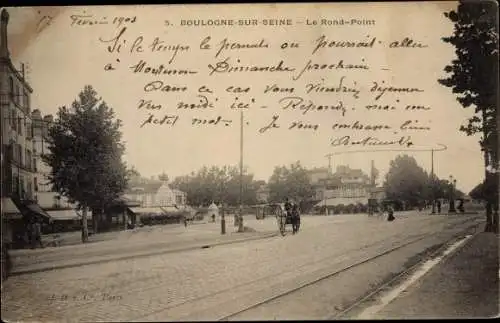 17 Février 1903
5. BOULOGNE-SUR-SEINE - Le Rond-Point
Si le temps le permets on pourrait aller
à Montesson Dimanche prochain -
Dans ce cas vous viendriez déjeuner
vers midi ici - Répondez moi un
petit mot - Je vous embrasse bien
J. D. & C., PARIS